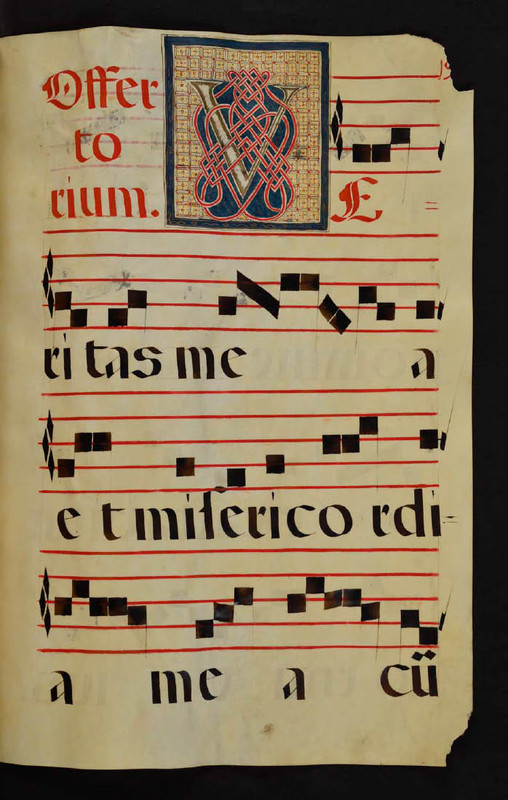 Offer
to
rium. V E =
ritas me a
et misericordi-
a me a cū